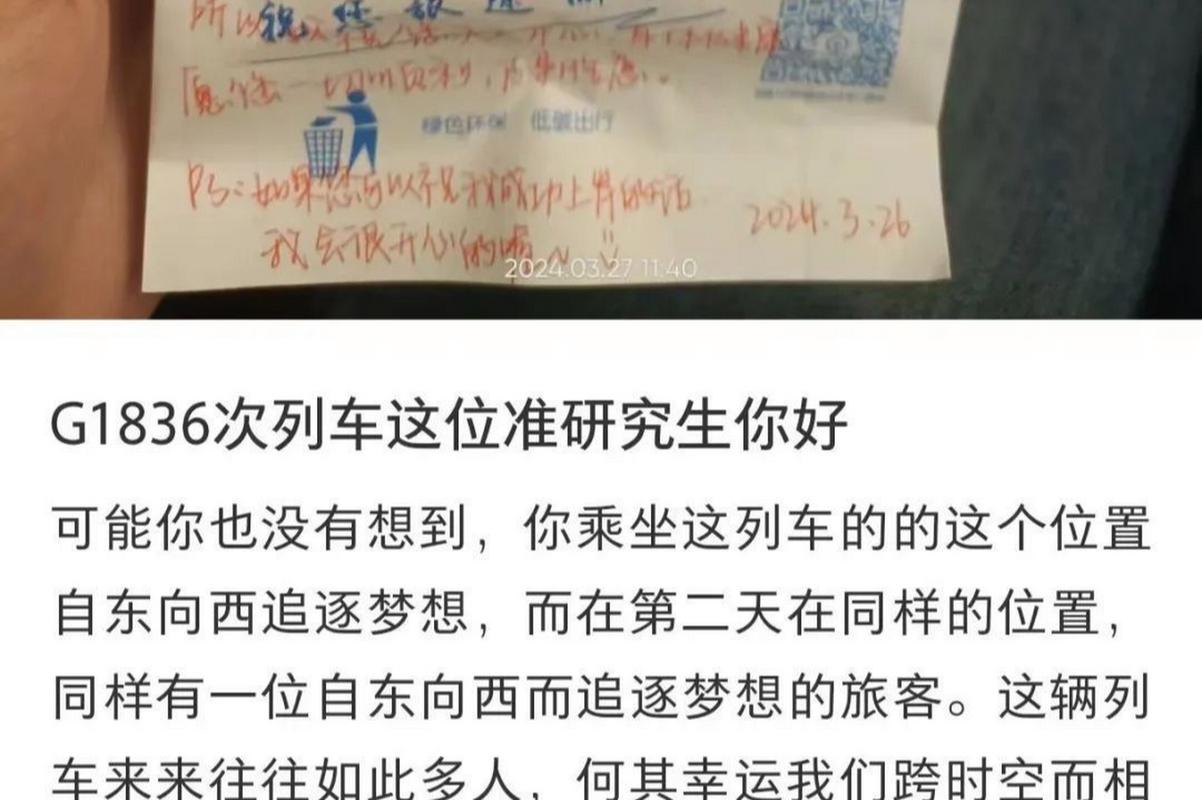 所以祝您旅途
愿您一切顺利，
绿色环保 低碳出行
PS：如果您可以祝我成功上岸的话
我会很开心的喔~
2024.3.26
2024.03.27 11:40
G1836次列车这位准研究生你好
可能你也没有想到，你乘坐这列车的的这个位置
自东向西追逐梦想，而在第二天在同样的位置，
同样有一位自东向西而追逐梦想的旅客。这辆列
车来来往往如此多人，何其幸运我们跨时空而相